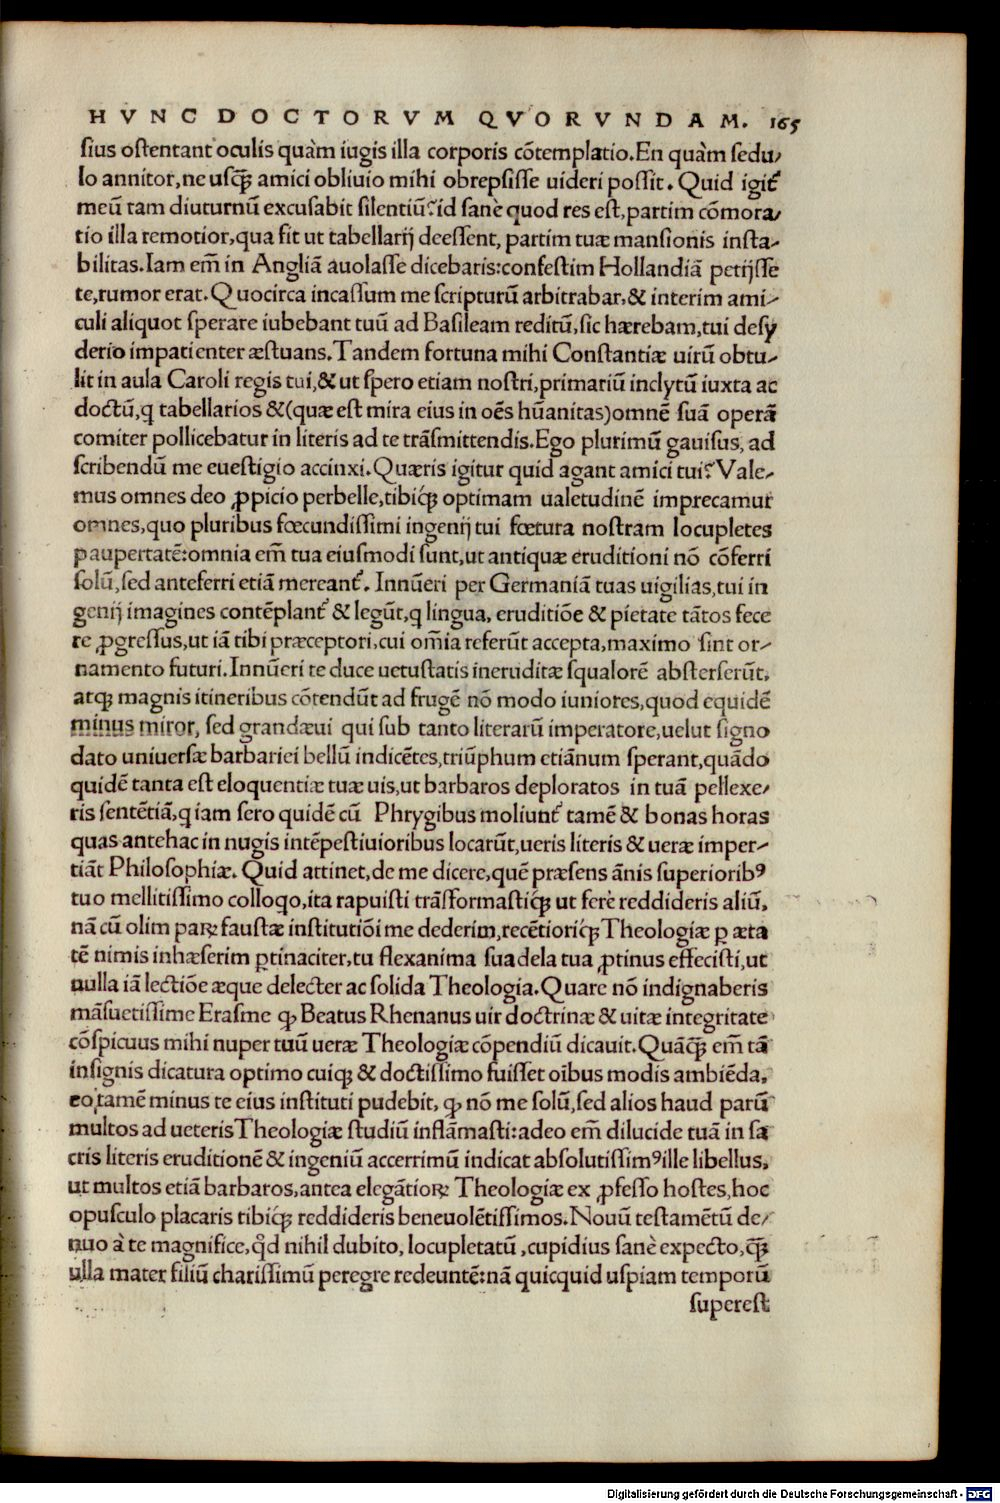 HVNC DOCTORVM QVORVNDAM. 165
sius ostentant oculis quàm iugis illa corporis cōtemplatio. En quàm sedu⸗
lo annitor, ne usq̃ꝫ amici obliuio mihi obrepsisse uideri possit. Quid igit᷑
meū tam diuturnū excusabit silentiū? id sanè quod res est, partim cōmora⸗
tio illa remotior, qua fit ut tabellarij deessent, partim tuæ mansionis insta⸗
bilitas. Iam em̄ in Angliā auolasse dicebaris: confestim Hollandiā petijsse
te, rumor erat. Quocirca incassum me scripturū arbitrabar, & interim ami⸗
culi aliquot sperare iubebant tuū ad Basileam reditū, sic hærebam, tui desy
derio impatienter æstuans. Tandem fortuna mihi Constantiæ uirū obtu⸗
lit in aula Caroli regis tui, & ut spero etiam nostri, primariū inclytū iuxta ac
doctū, q tabellarios & (quæ est mira eius in oēs hūanitas) omnē suā operā
comiter pollicebatur in literis ad te trāsmittendis. Ego plurimū gauisus, ad
scribendū me euestigio accinxi. Quæris igitur quid agant amici tui? Vale⸗
mus omnes deo ꝓpicio perbelle, tibiq́ꝫ optimam ualetudinē imprecamur
omnes, quo pluribus fœcundissimi ingenij tui fœtura nostram locupletes
paupertatē: omnia em̄ tua eiusmodi sunt, ut antiquæ eruditioni nō cōferri
solū, sed anteferri etiā mereant᷑. Innūeri per Germaniā tuas uigilias, tui in
genij imagines contēplant᷑ & legūt, q lingua, eruditiōe & pietate tātos fece
re ꝓgressus, ut iā tibi præceptori, cui om̄ia referūt accepta, maximo sint or⸗
namento futuri. Innūeri te duce uetustatis ineruditæ squalorē absterserūt,
atqꝫ magnis itineribus cōtendūt ad frugē nō modo iuniores, quod equidē
minus miror, sed grandæui qui sub tanto literarū imperatore, uelut signo
dato uniuersæ barbariei bellū indicētes, triūphum etiānum sperant, quādo
quidē tanta est eloquentiæ tuæ uis, ut barbaros deploratos in tuā pellexe⸗
ris sentētiā, q iam sero quidē cū Phrygibus moliunt᷑ tamē & bonas horas
quas antehac in nugis intēpestiuioribus locarūt, ueris literis & ueræ imper⸗
tiāt Philosophiæ. Quid attinet, de me dicere, quē præsens ānis superioribꝰ
tuo mellitissimo colloqo, ita rapuisti trāsformastiq́ꝫ ut ferè reddideris aliū,
nā cū olim paꝝ faustæ institutiōi me dederim, recētioriq́ꝫ Theologiæ ꝑ æta
tē nimis inhæserim ꝑtinaciter, tu flexanima suadela tua ꝓtinus effecisti, ut
nulla iā lectiōe æque delecter ac solida Theologia. Quare nō indignaberis
māsuetissime Erasme ꝙ Beatus Rhenanus uir doctrinæ & uitæ integritate
cōspicuus mihi nuper tuū ueræ Theologiæ cōpendiū dicauit. Quāq̃ꝫ em̄ tā
insignis dicatura optimo cuiqꝫ & doctissimo fuisset oībus modis ambiēda,
eo tamē minus te eius instituti pudebit, ꝙ nō me solū, sed alios haud parū
multos ad ueteris Theologiæ studiū inflāmasti: adeo em̄ dilucide tuā in sa
cris literis eruditionē & ingeniū accerrimū indicat absolutissimꝰ ille libellus,
ut multos etiā barbaros, antea elegātioꝝ Theologiæ ex ꝓfesso hostes, hoc
opusculo placaris tibiq́ꝫ reddideris beneuolētissimos. Nouū testamētū de⸗
nuo à te magnifice, qd̄ nihil dubito, locupletatū, cupidius sanè expecto, q̃ꝫ
ulla mater filiū charissimū peregre redeuntē: nā quicquid uspiam temporū
superest
Digitalisierung gefördert durch die Deutsche Forschungsgemeinschaft - DFG